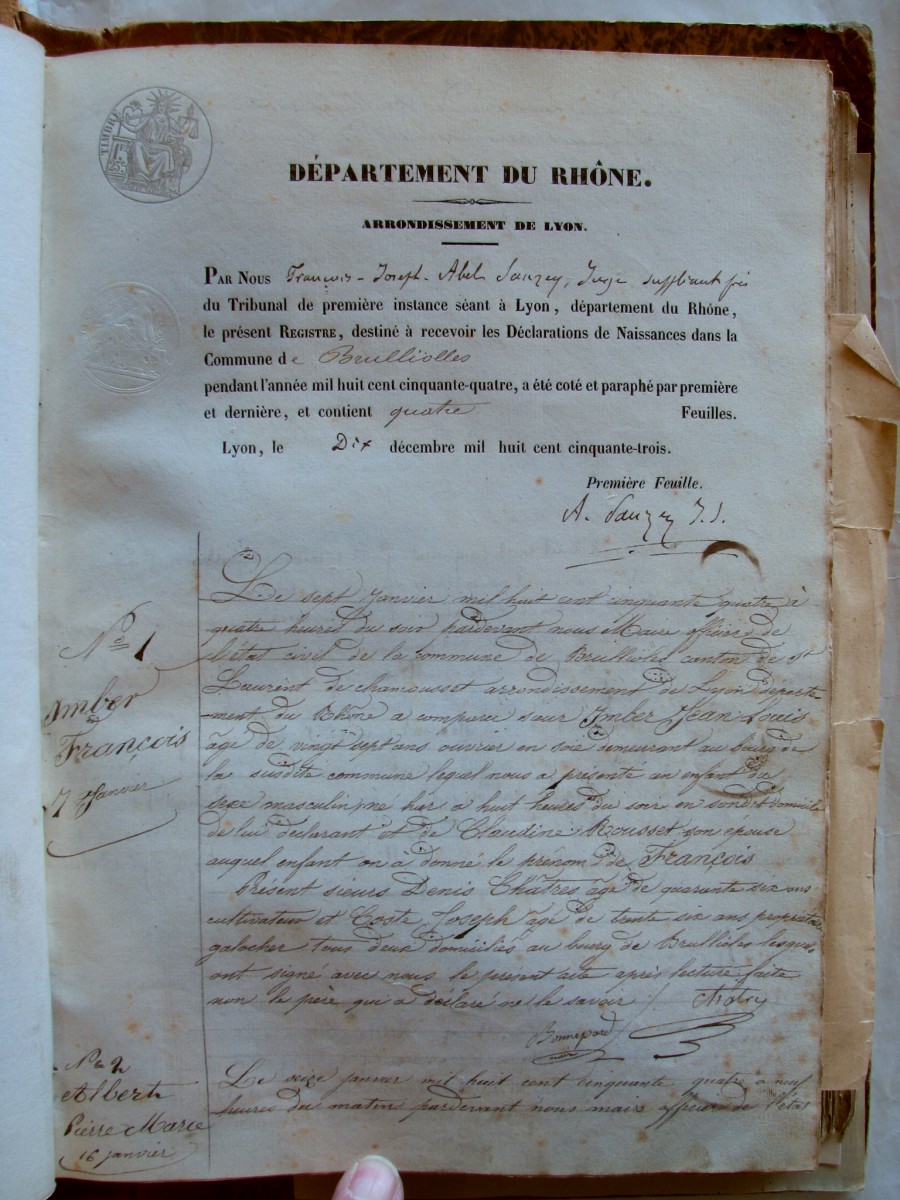 TIMBRE
DÉPARTEMENT DU RHÔNE.
ARRONDISSEMENT DE LYON.
PAR NOUS François-Joseph-Abel Sauzey, Juge suppléant près
du Tribunal de première instance séant à Lyon, département du Rhône,
le présent REGISTRE, destiné à recevoir les Déclarations de Naissances dans la
Commune de Brulliolles
pendant l'année mil huit cent cinquante-quatre, a été coté et paraphé par première
et dernière, et contient quatre Feuilles.
Lyon, le Dix décembre mil huit cent cinquante-trois.
Première Feuille.
A. Sauzey J. S.
No 1
Imber
François
7 Janvier
Le sept Janvier mil huit cent cinquante quatre à
quatre heures du soir pardevant nous Maire officier de
l'état civil de la commune de Brullioles canton de St
Laurent de chamousset arrondissement de Lyon départe
ment du Rhône a comparu sieur Imber Jean Louis
âgé de vingt sept ans ouvrier en soie demeurant au bourg de
la susdite commune lequel nous a présenté un enfant du
sexe masculin né hier a huit heures du soir en son domicile
de lui déclarant et de Claudine Rousset son épouse
auquel enfant on à donné le prénom de François
Présent sieurs Denis Châtres âgé de quarante six ans
cultivateur et Coste Joseph âgé de trente six ans propriétaire
galocher tous deux domiciliés au bourg de Brullioles lesquels
ont signé avec nous le présent acte après lecture faite
non le père qui a déclaré ne le savoir
Bonnepard
No 2
Albert
Pierre Marie
16 janvier
Le seize janvier mil huit cent cinquante quatre a neuf
heures du matin pardevant nous maire officier de l'état